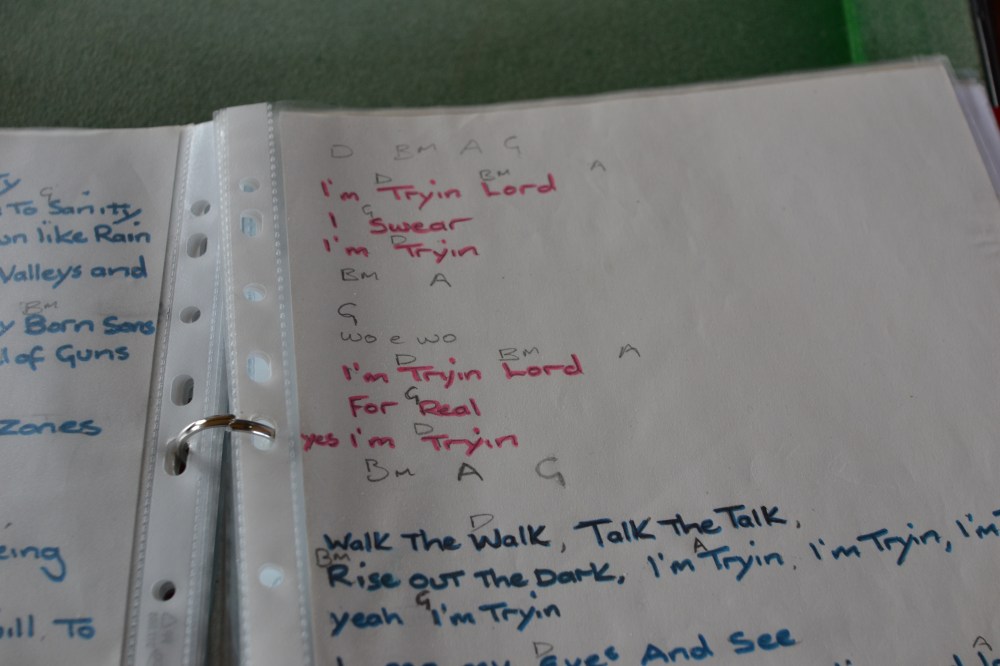 G
To Sanity
like Rain
Valleys and
Bm
Born Sons
of Guns
zones
To
D Bm A G
D Bm A
I'm Tryin Lord
G
I Swear
D
I'm Tryin
Bm A
G
wo e wo
D Bm A
I'm Tryin Lord
G
For Real
D
yes I'm Tryin
Bm A G
D
Walk The Walk, Talk The Talk,
Bm A
Rise out The Dark, I'm Tryin, I'm Tryin, I'm
G
yeah I'm Tryin
D A
my Eyes And See